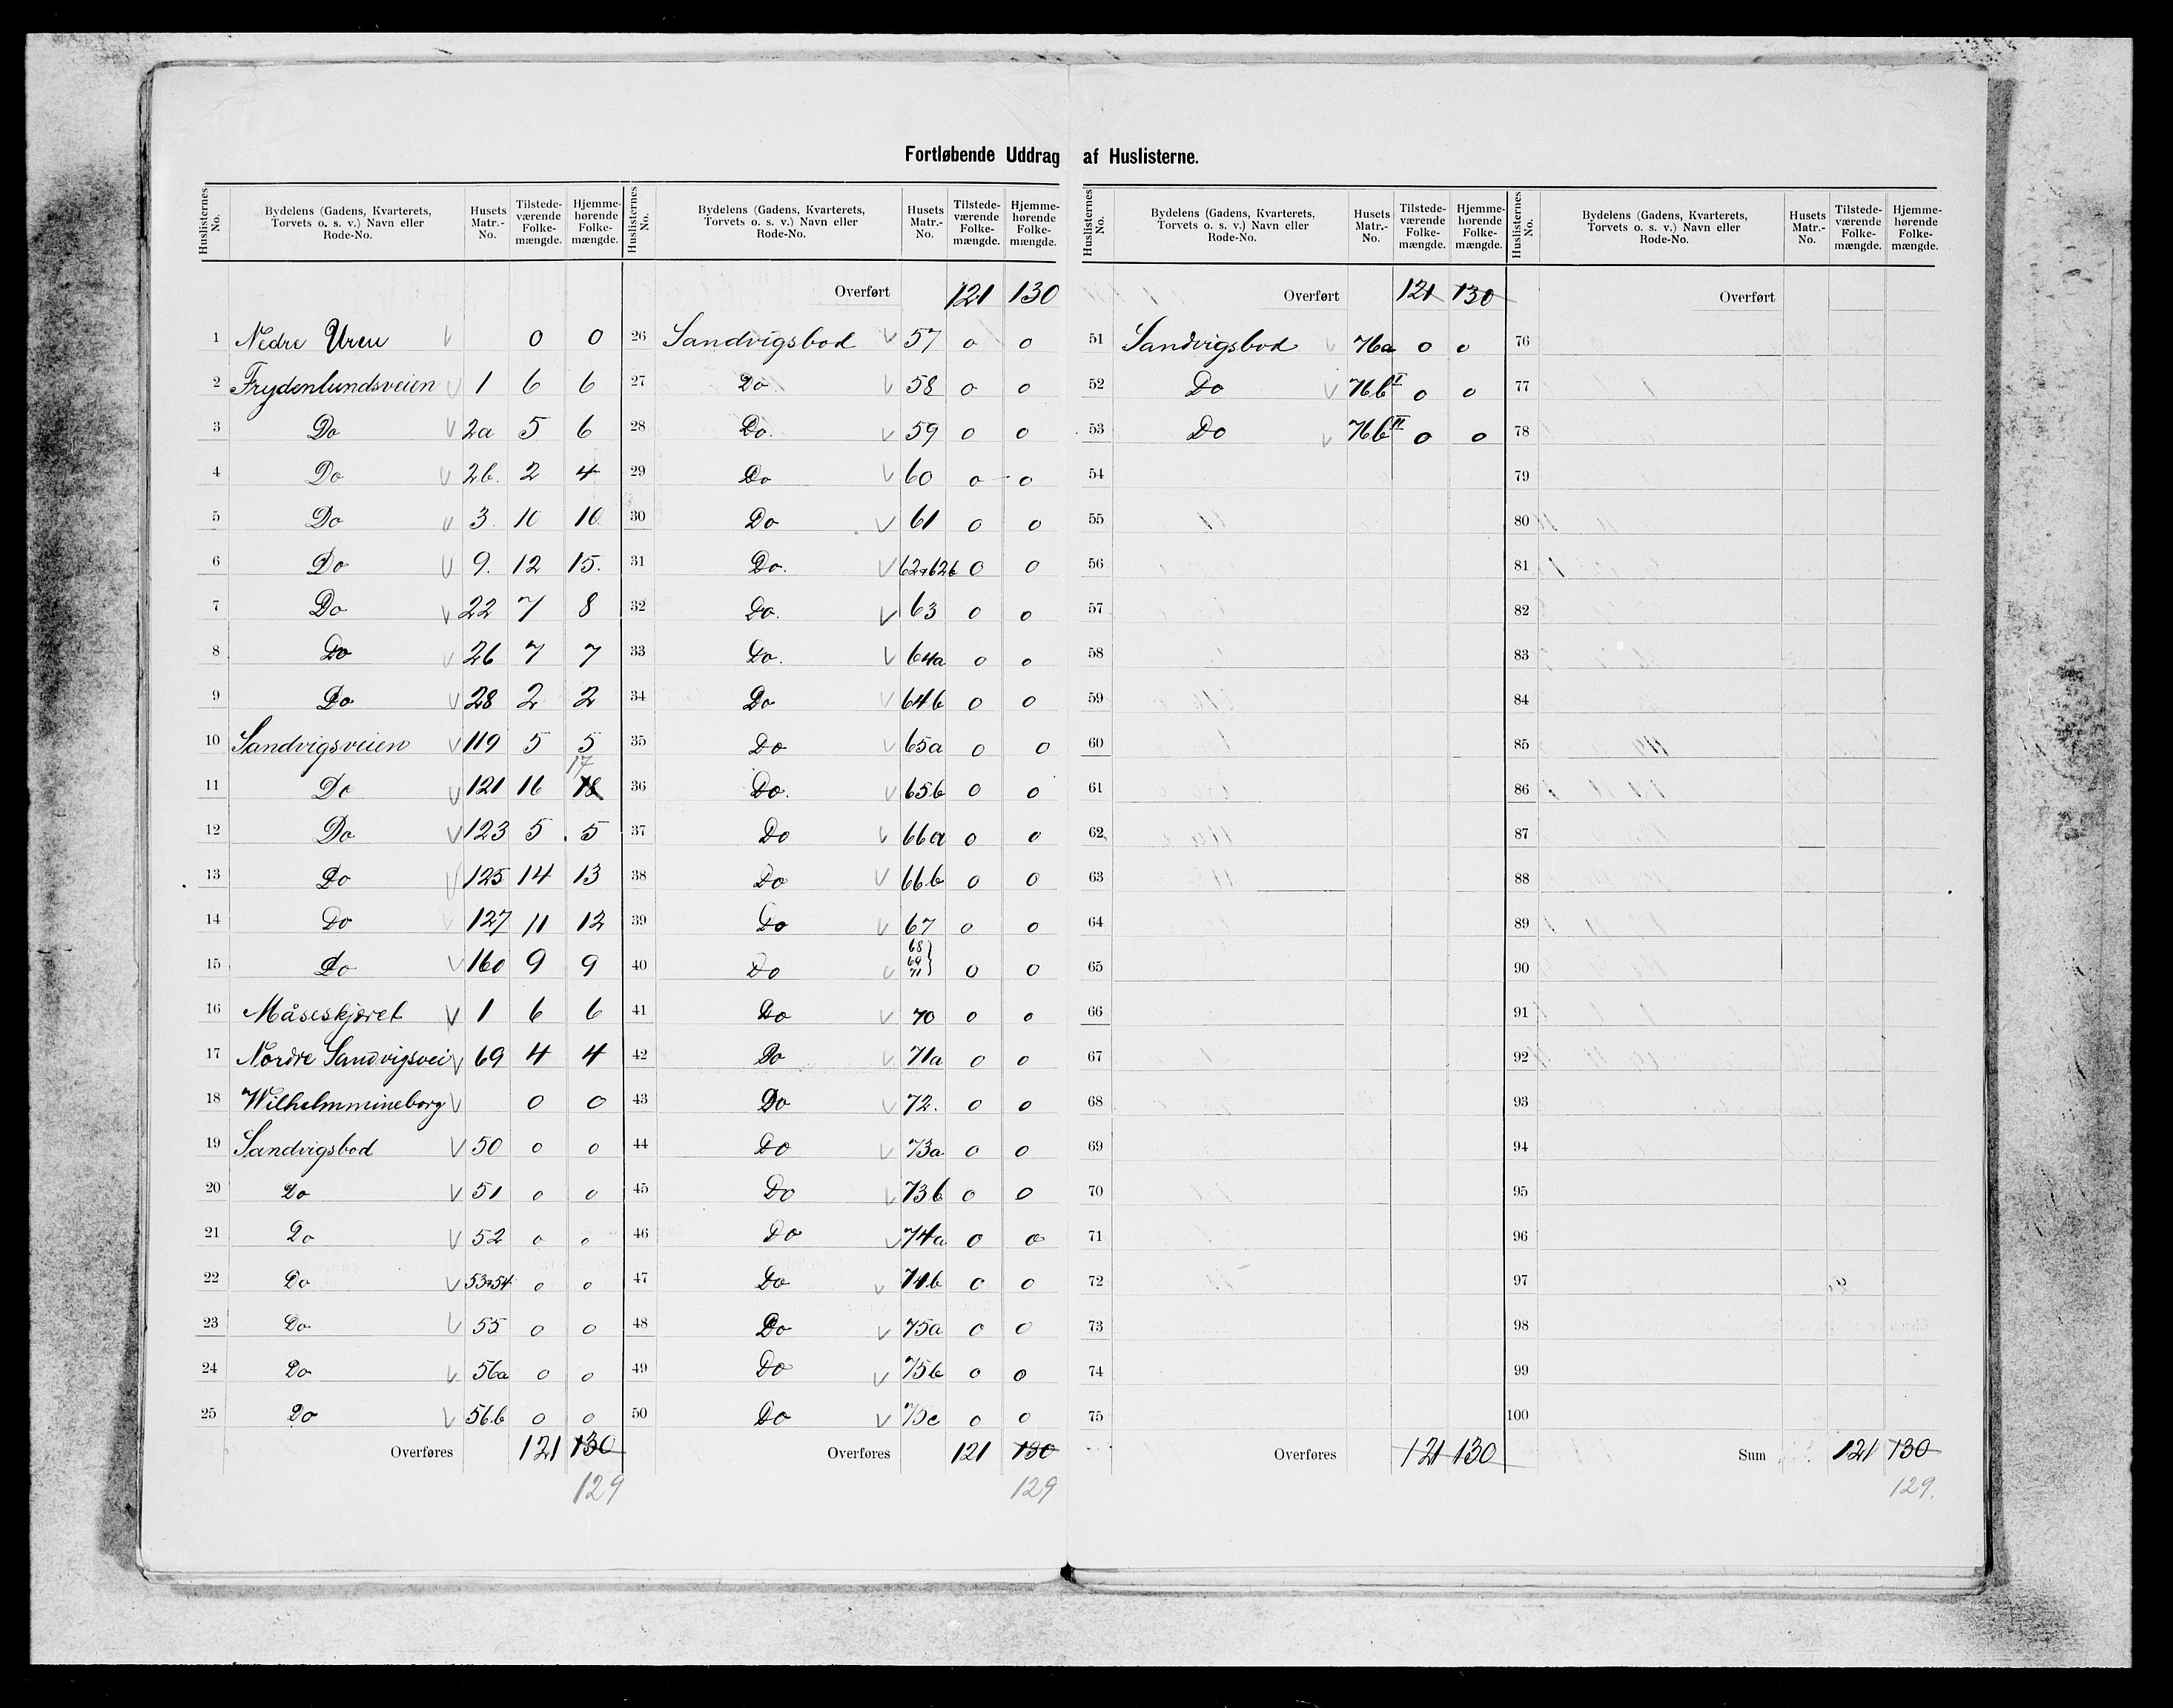 Fortløbende Uddrag af Huslisterne.
Huslisternes No. | Bydelens (Gadens, Kvarterets, Torvets o. s. v.) Navn eller Rode-No. | Husets Matr.-No. | Tilstede-værende Folke-mængde. | Hjemme-hørende Folke-mængde.
1 Nedre Uren V 0 0
2 Frydenlundsveien V 1 6 6
3 Do V 2a 5 6
4 Do V 2b. 2 4
5 Do V 3. 10 10
6 Do V 9. 12 15.
7 Do V 22 7 8
8 Do V 26 7 7
9 Do V 28 2 2
10 Sandvigsveien V 119 5 5
17
11 Do V 121 16 18
12 Do V 123 5 5
13 Do V 125 14 13
14 Do V 127 11 12
15 Do V 160 9 9
16 Måseskjæret V 1 6 6
17 Nordre Sandvigsvei V 69 4 4
18 Wilhelmmineborg V 0 0
19 Sandvigsbod V 50 0 0
20 Do V 51 0 0
21 Do V 52 0 0
22 Do V 53&54 0 0
23 Do V 55 0 0
24 Do V 56a 0 0
25 Do V 56b 0 0
Overføres 121 130
129
Huslisternes No. | Bydelens (Gadens, Kvarterets, Torvets o. s. v.) Navn eller Rode-No. | Husets Matr.-No. | Tilstede-værende Folke-mængde. | Hjemme-hørende Folke-mængde.
Overført 121 130
26 Sandvigsbod V 57 0 0
27 Do V 58 0 0
28 Do. V 59 0 0
29 Do V 60 0 0
30 Do V 61 0 0
31 Do. V 62a62b 0 0
32 Do. V 63 0 0
33 Do. V 64a 0 0
34 Do V 64b 0 0
35 Do V 65a 0 0
36 Do. V 65b 0 0
37 Do V 66a 0 0
38 Do V 66b 0 0
39 Do V 67 0 0
40 Do V 68 69 71} 0 0
41 Do V 70 0 0
42 Do V 71a 0 0
43 Do V 72. 0 0
44 Do V 73a 0 0
45 Do V 73b 0 0
46 Do V 74a 0 0
47 Do V 74b 0 0
48 Do V 75a 0 0
49 Do V 75b 0 0
50 Do V 75c 0 0
Overføres 121 130
129
Huslisternes No. | Bydelens (Gadens, Kvarterets, Torvets o. s. v.) Navn eller Rode-No. | Husets Matr.-No. | Tilstede-værende Folke-mængde. | Hjemme-hørende Folke-mængde.
Overført 121 130
51 Sandvigsbod V 76a 0 0
52 Do V 76b I 0 0
53 Do V 76b II 0 0
54
55
56
57
58
59
60
61
62
63
64
65
66
67
68
69
70
71
72
73
74
75
Overføres 121 130
Huslisternes No. | Bydelens (Gadens, Kvarterets, Torvets o. s. v.) Navn eller Rode-No. | Husets Matr.-No. | Tilstede-værende Folke-mængde. | Hjemme-hørende Folke-mængde.
Overført
76
77
78
79
80
81
82
83
84
85
86
87
88
89
90
91
92
93
94
95
96
97
98
99
100
Sum 121 130
129.